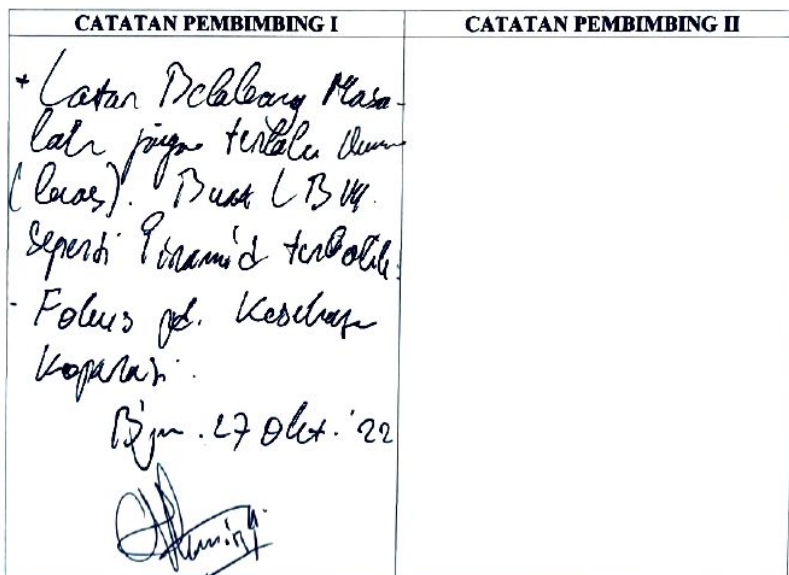 CATATAN PEMBIMBING I
CATATAN PEMBIMBING II
+ Latar Belakang Masa-
lah jangan terlalu umum
(luas). Buat LBM
seperti Piramid terbalik.
- Fokus pd. Kesehatan
Koperasi.
Bjm. 27 Okt. '22